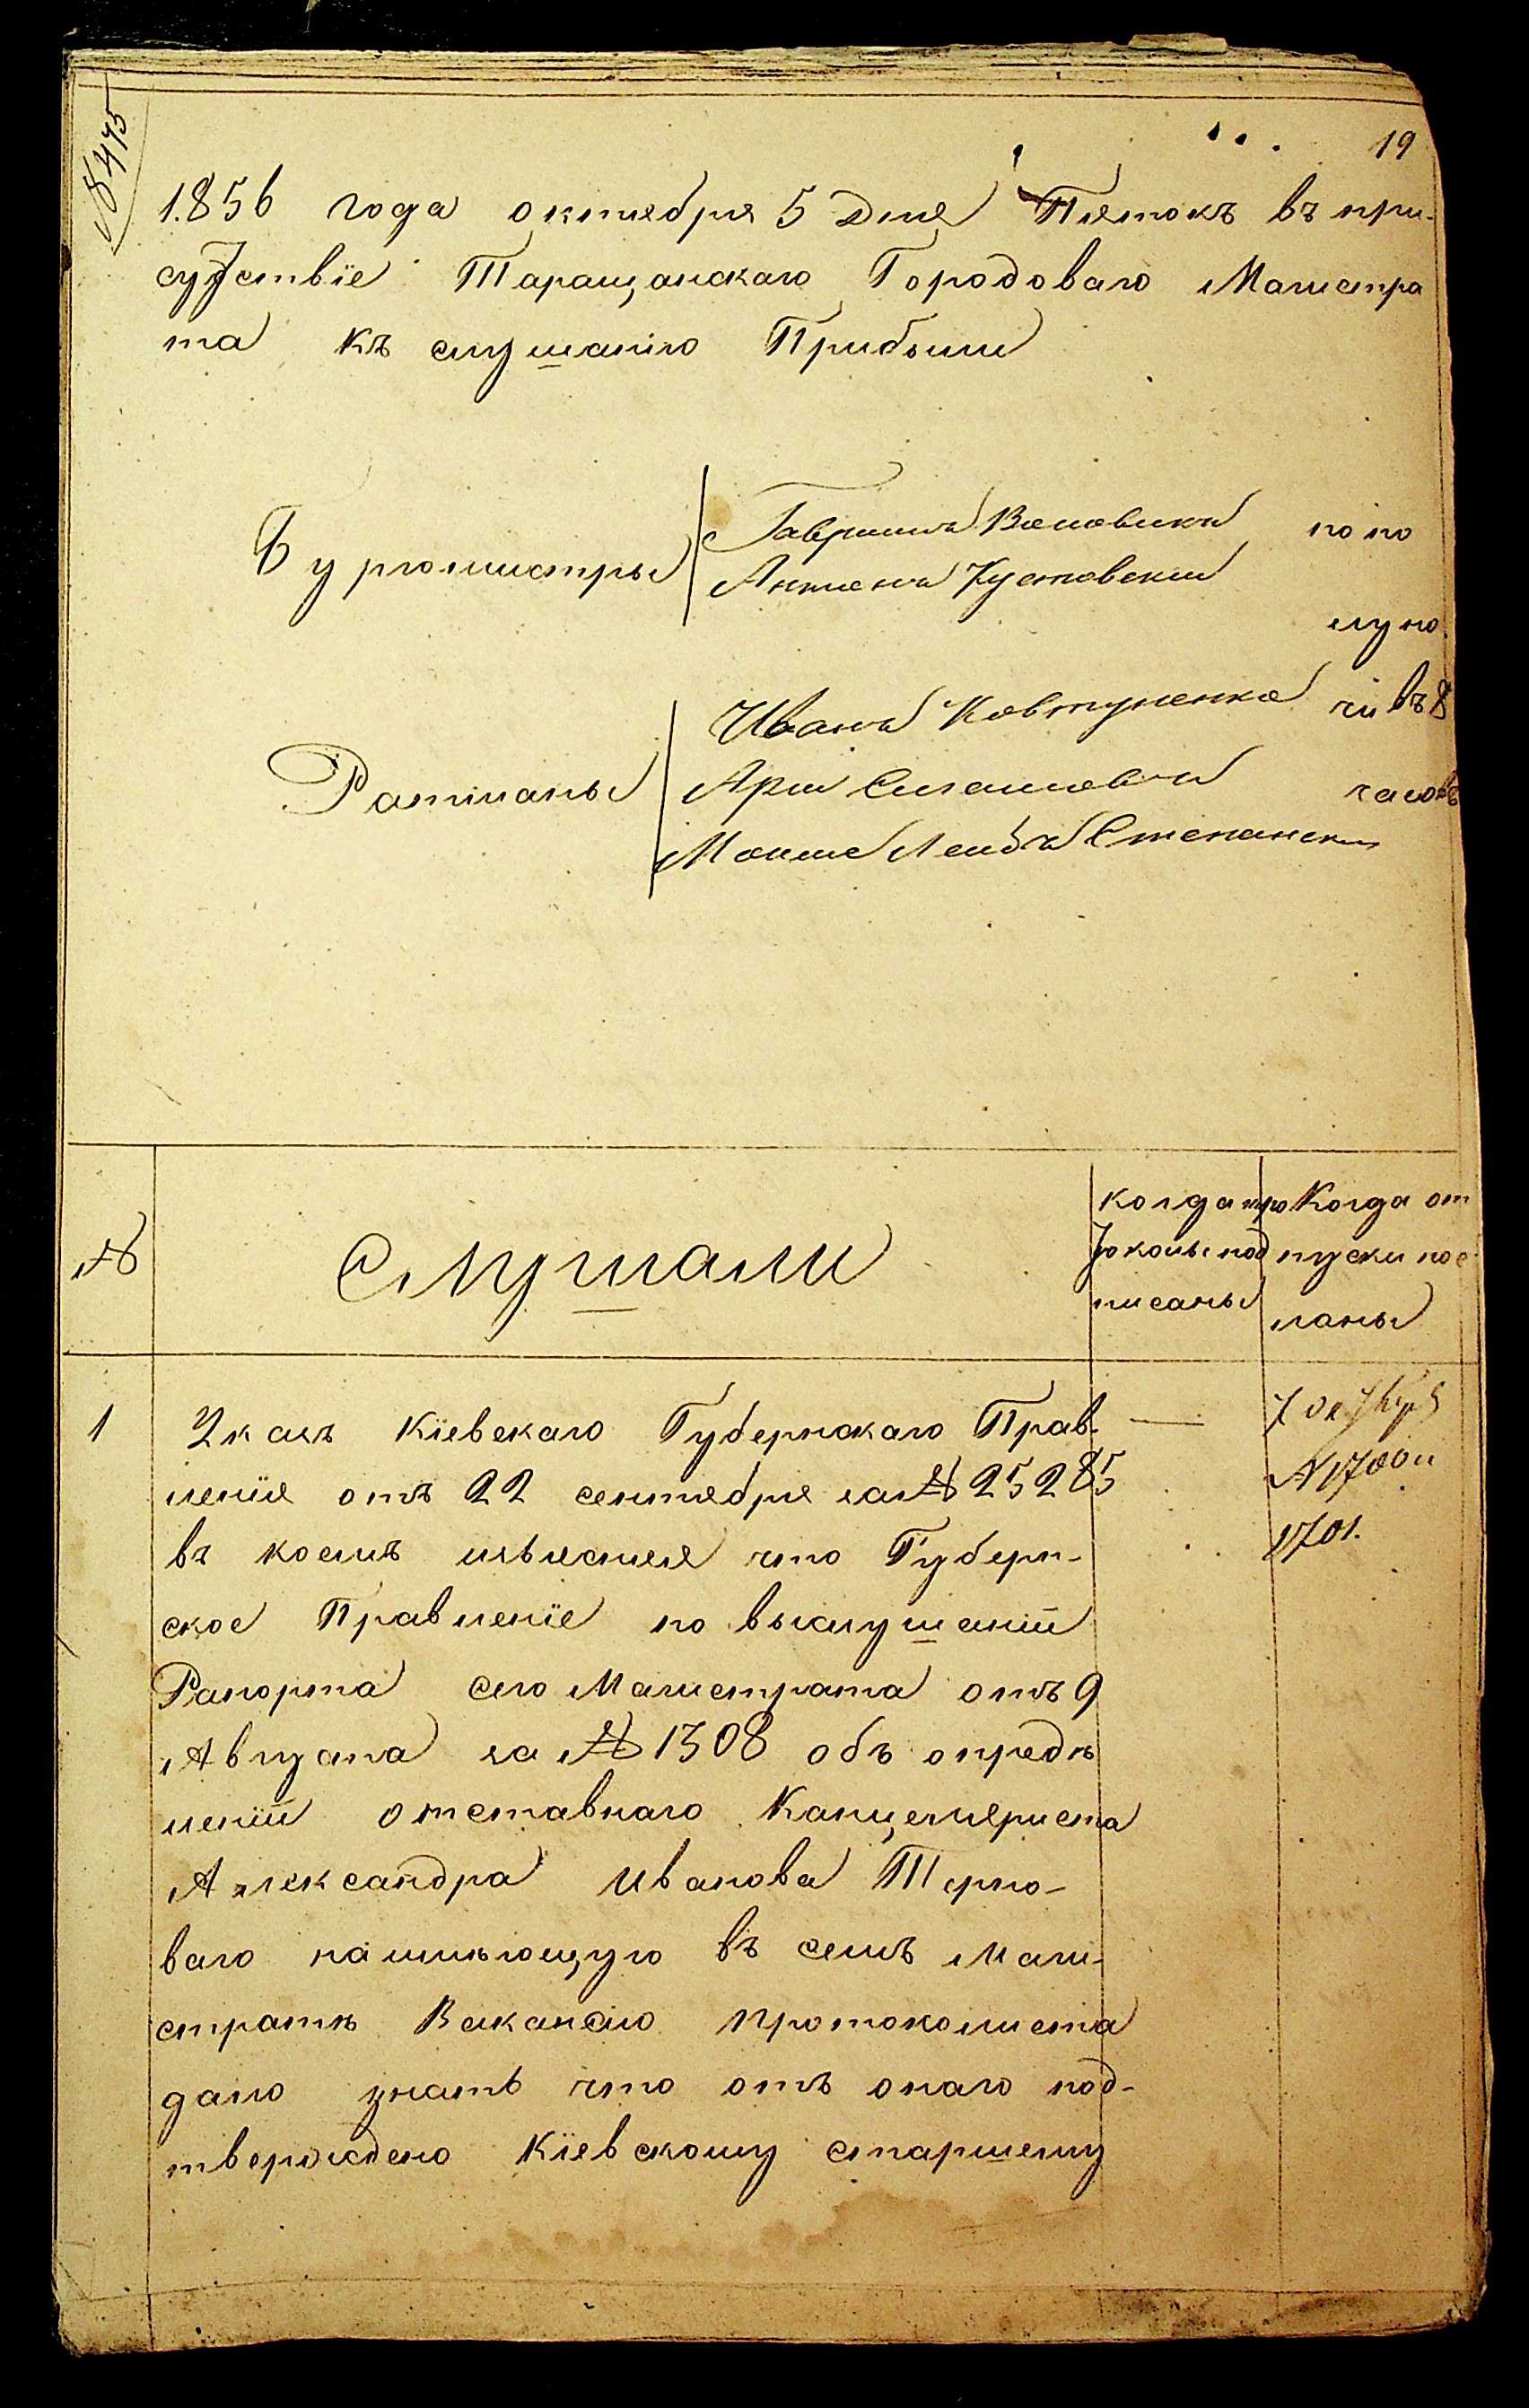 № 475
19
1856 года октября 5 Дня Пятокъ въ при-
судствіе Таращанскаго Городоваго Магистра
та къ слушанію Прибыли
Бургомистры
Гавриилъ
Антонъ
по по
лу но
чи въ 8
часовъ
Ратманы
Иванъ Ковтуненко
Арии
Мошко Лейба Степански
№
Слушали
когда про
токолы под
писаны
Когда от
пуски пос
ланы
1
Указъ Кіевскаго Губернскаго Прав-
ленія отъ 22 сентября за № 25285
въ коемъ изъясняя что Губерн-
ское Правленіе по выслушаніи
Рапорта сего Магистрата отъ 9
Августа за № 1308 объ опредѣ
леніи отставнаго Канцеляриста
Александра Иванова Терно-
ваго на имѣющую въ семъ Маги-
стратѣ Вакансію протоколиста
дало знать что отъ онаго под-
тверждено Кіевскому старшему
7 октября
№ 1700 и
1701.